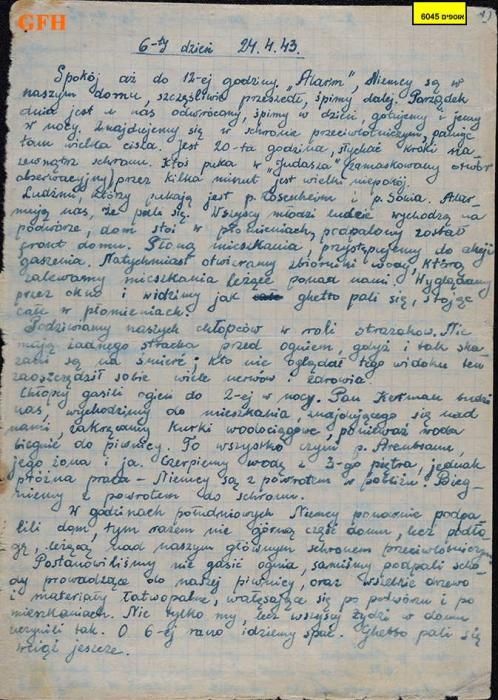 GFH
אוספים 6045
1)
6-ty dzień 24.4.43.
Spokój aż do 12-ej godziny „Alarm", Niemcy są w
naszym domu, szczęśliwie przeszedł, śpimy dalej. Porządek
dnia jest u nas odwrócony, śpimy w dzień, gotujemy i jemy
w nocy. Znajdujemy się w schronie przeciwlotniczym, panuje
tam wielka cisza. Jest 20-ta godzina, słychać kroki na
zewnątrz schronu. Ktoś puka w „judasza" (zamaskowany otwór
obserwacyjny) przez kilka minut jest wielki niepokój.
Ludźmi, którzy pukają jest p. Rosenheim i p. Sonia. Alar-
mują nas, że pali się. Wszyscy młodzi ludzie wychodzą na
podwórze, dom stoi w płomieniach, podpalony został
front domu. Płoną mieszkania, przystępujemy do akcji
gaszenia. Natychmiast otwieramy zbiorniki wody, którą
zalewamy mieszkania leżące ponad nami. Wyglądamy
przez okno i widzimy jak ghetto pali się, stojąc
całe w płomieniach.
Podziwiamy naszych chłopców w roli strażaków. Nie
mają żadnego strachu przed ogniem, gdyż i tak ska-
zani są na śmierć; kto nie oglądał tego widoku ten
zaoszczędził sobie wiele nerwów i zdrowia.
Chłopcy gasili ogień do 2-ej w nocy. Pan Kerman budzi
nas, wychodzimy do mieszkania znajdującego się nad
nami, zakręcamy kurki wodociągowe, ponieważ woda
biegnie do piwnicy. To wszystko czyni p.
jego żona i ja. Czerpiemy wodę z 3-go piętra, jednak
próżna praca - Niemcy są z powrotem w pobliżu. Bieg-
niemy z powrotem do schronu.
W godzinach południowych Niemcy ponownie podpa-
lili dom, tym razem nie górną część domu, lecz podło-
gę, leżącą nad naszym głównym schronem przeciwlotniczym
Postanowiliśmy nie gasić ognia, samiśmy podpali scho-
dy prowadzące do naszej piwnicy, oraz wszelkie drzewo
i materiały łatwopalne, wałęsające się po podwórzu i po
mieszkaniach. Nie tylko my, lecz wszyscy żydzi w domu
uczynili tak. O 6-ej rano idziemy spać. Ghetto pali się
wciąż jeszcze.